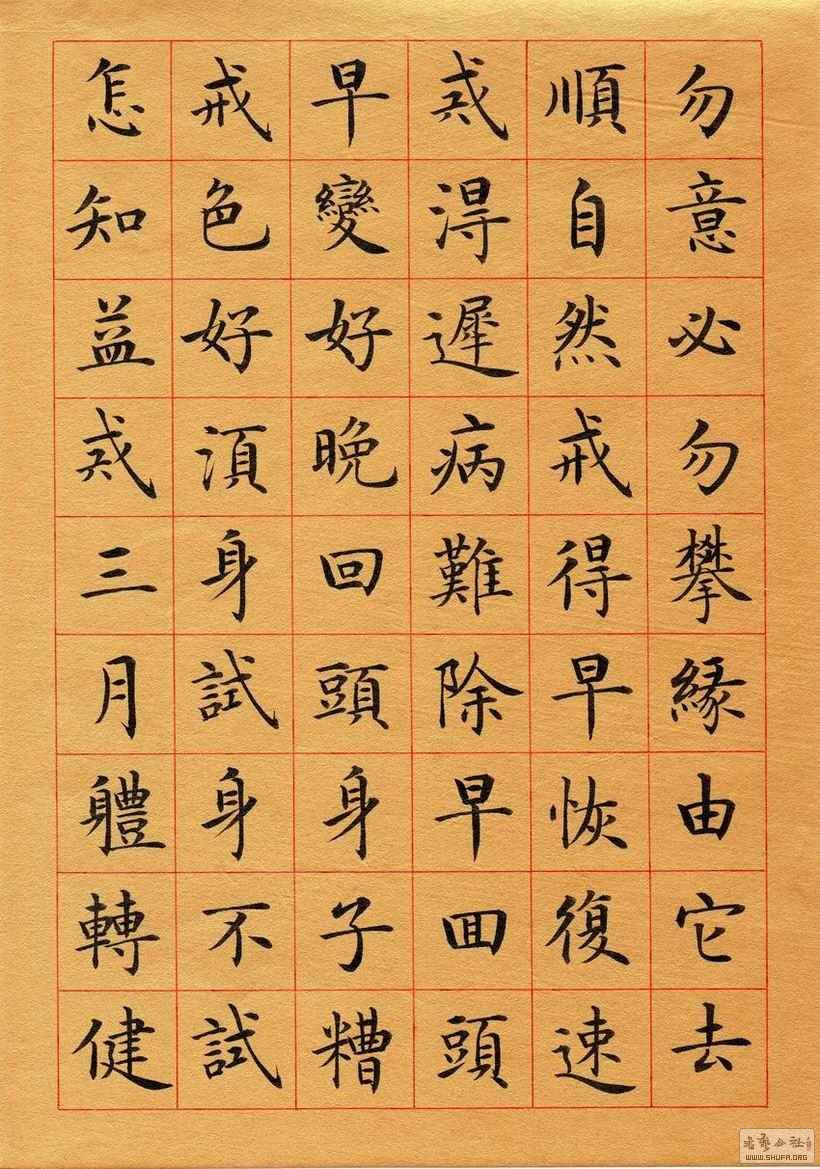 勿意必勿攀緣由它去
順自然戒得早恢復速
戒得遲病難除早回頭
早變好晚回頭身子糟
戒色好須身試身不試
怎知益戒三月體轉健
书艺公社
WWW.SHUFA.ORG